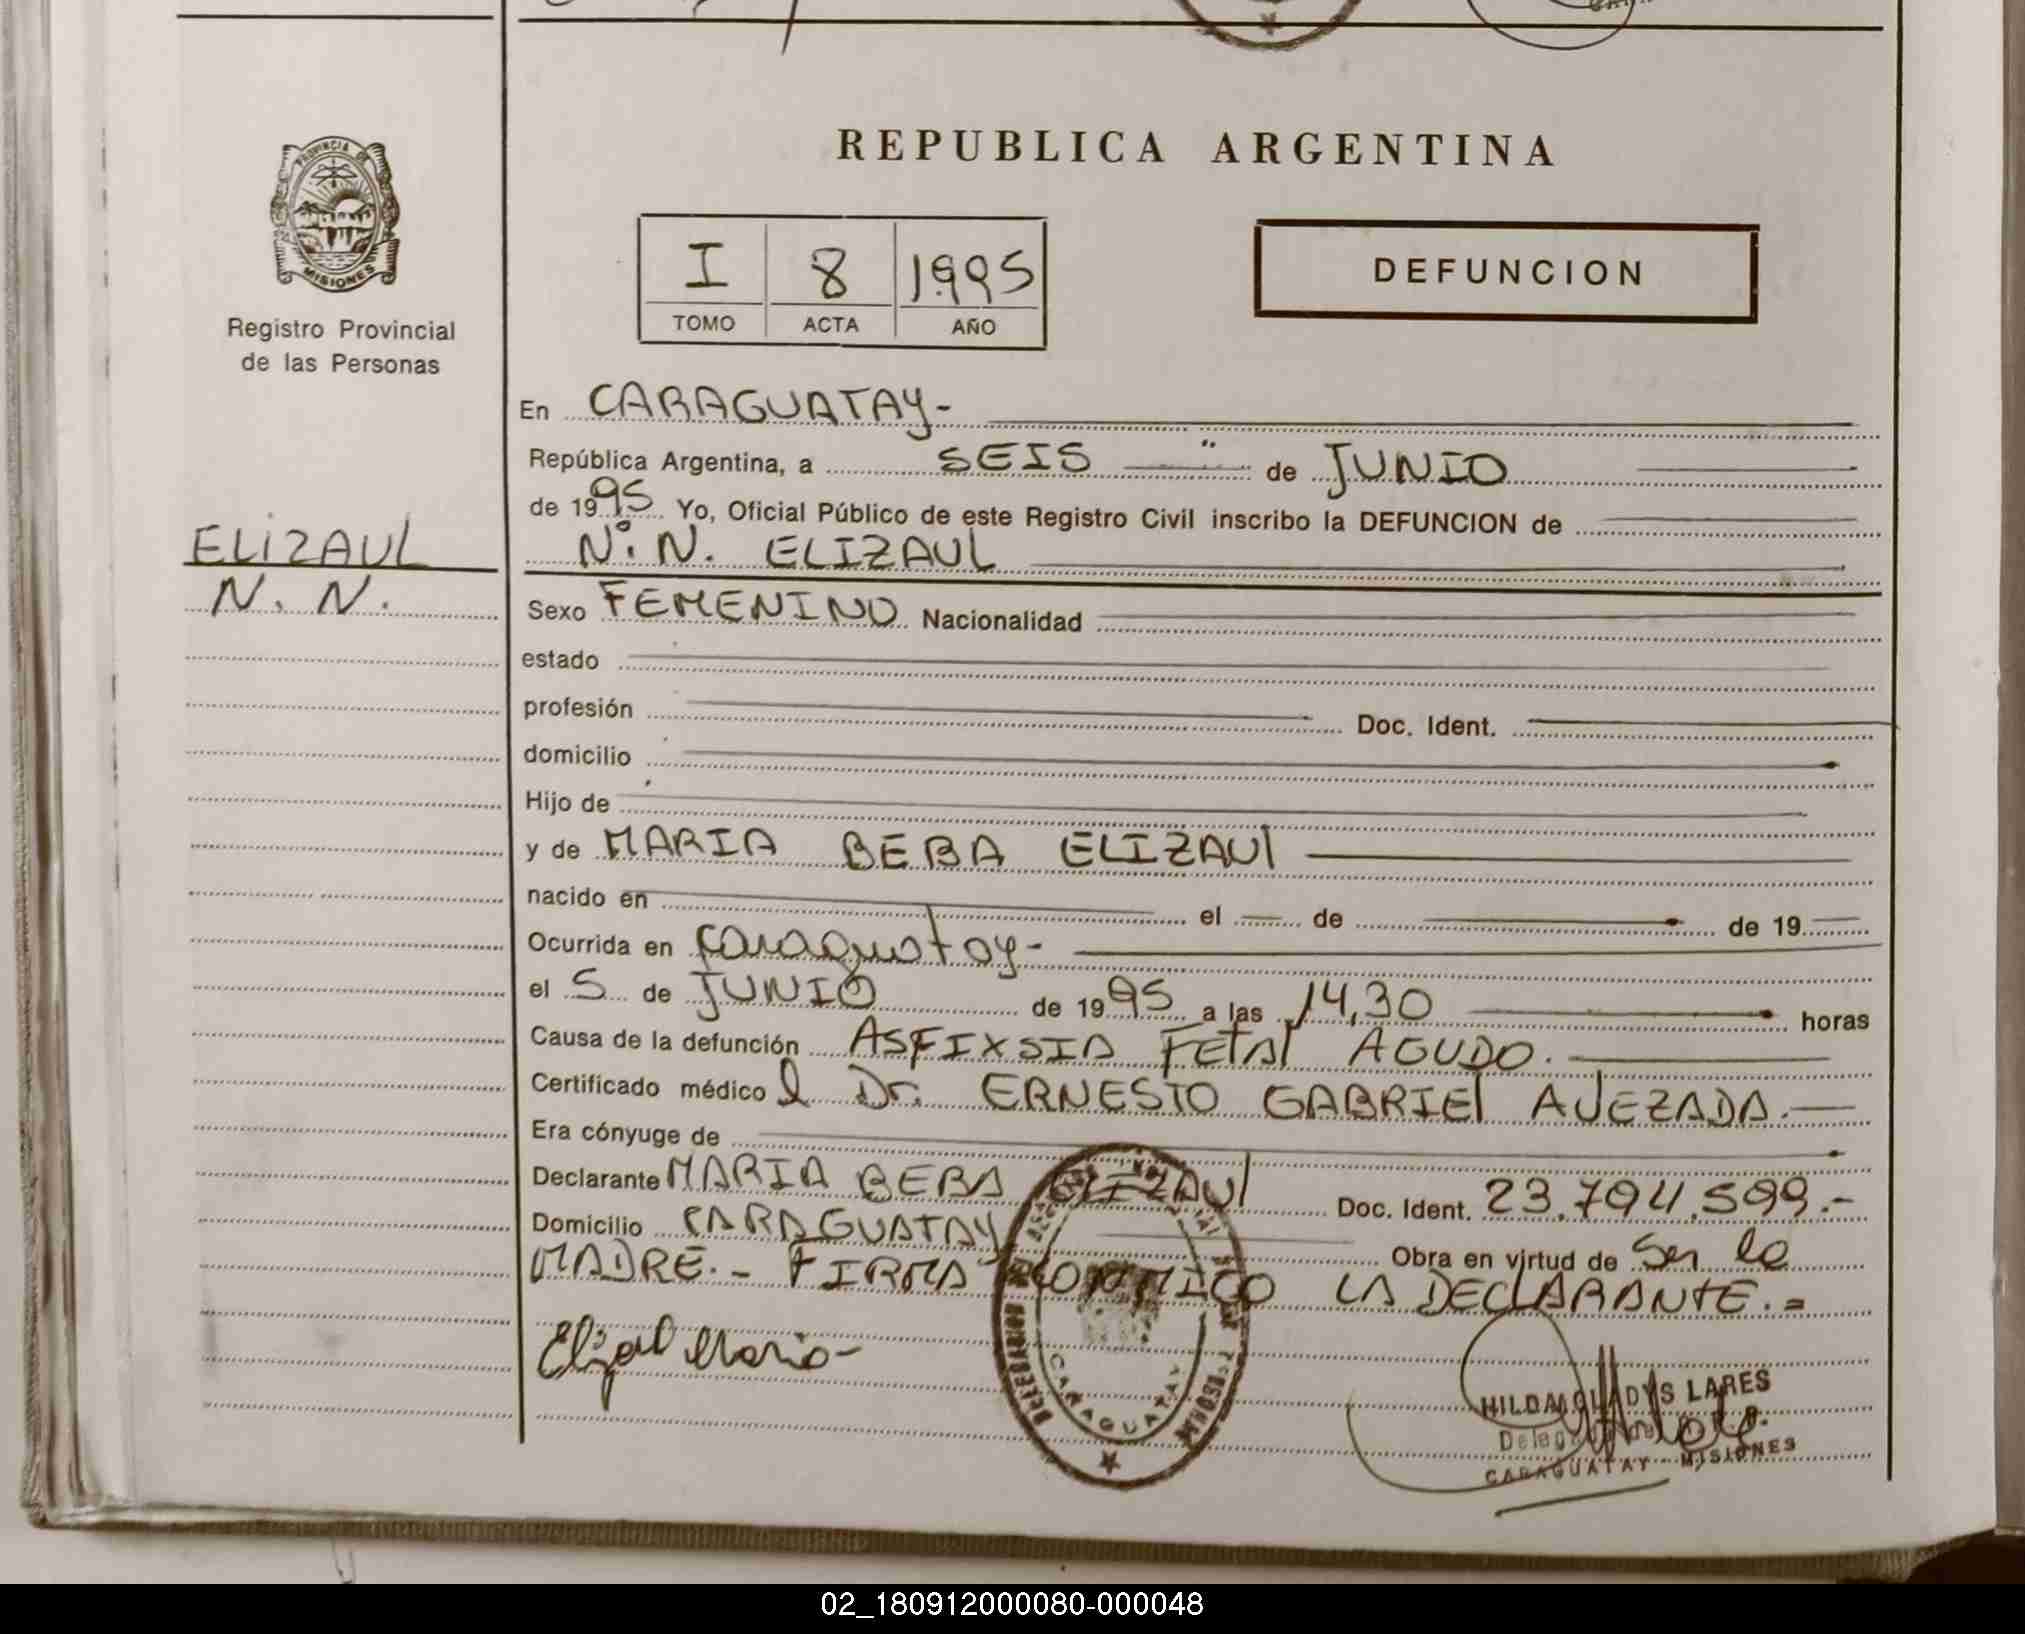 REPUBLICA ARGENTINA
PROVINCIA DE
MISIONES
Registro Provincial
de las Personas
I 8 1995
TOMO ACTA AÑO
DEFUNCION
En CARAGUATAY-
República Argentina, a SEIS de JUNIO
de 1995 Yo, Oficial Público de este Registro Civil inscribo la DEFUNCION de
N. N. ELIZAUL
ELIZAUL
N. N.
Sexo FEMENINO Nacionalidad
estado
profesión Doc. Ident.
domicilio
Hijo de
y de MARIA BEBA ELIZAUl
nacido en el de de 19
Ocurrida en Caraguatay-
el 5 de JUNIO de 1995 a las 14,30 horas
Causa de la defunción ASFIXSIA FETAl AGUDO.
Certificado médico Dr. ERNESTO GABRIEl AUEZADA.
Era cónyuge de
Declarante MARIA BEBA ELIZAUl Doc. Ident. 23.794.599.-
Domicilio CARAGUATAY Obra en virtud de Ser la
MADRE.- FIRMA CONMIGO LA DECLARANTE.=
Elizaul Maria-
CARAGUATAY
HILDA GLADYS LARES
CARAGUATAY - MISIONES
02_180912000080-000048